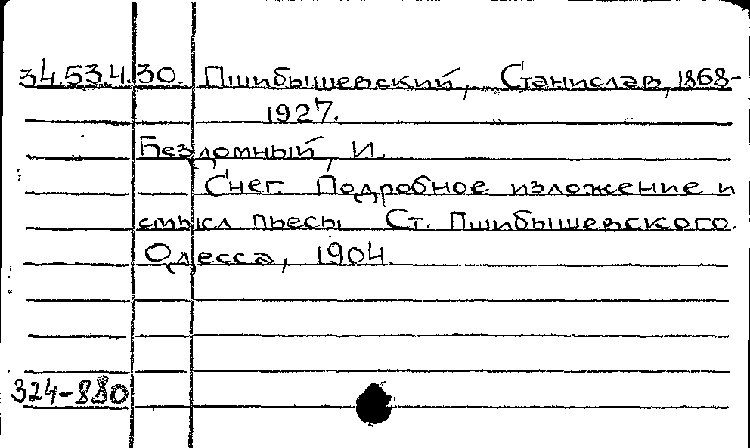 34.534.30. Пшибышевский, Станислав, 1868-
1927.
Бездомный, И.
Снег. Подробное изложение и
смысл пьесы Ст. Пшибышевского.
Одесса, 1904.
324-880